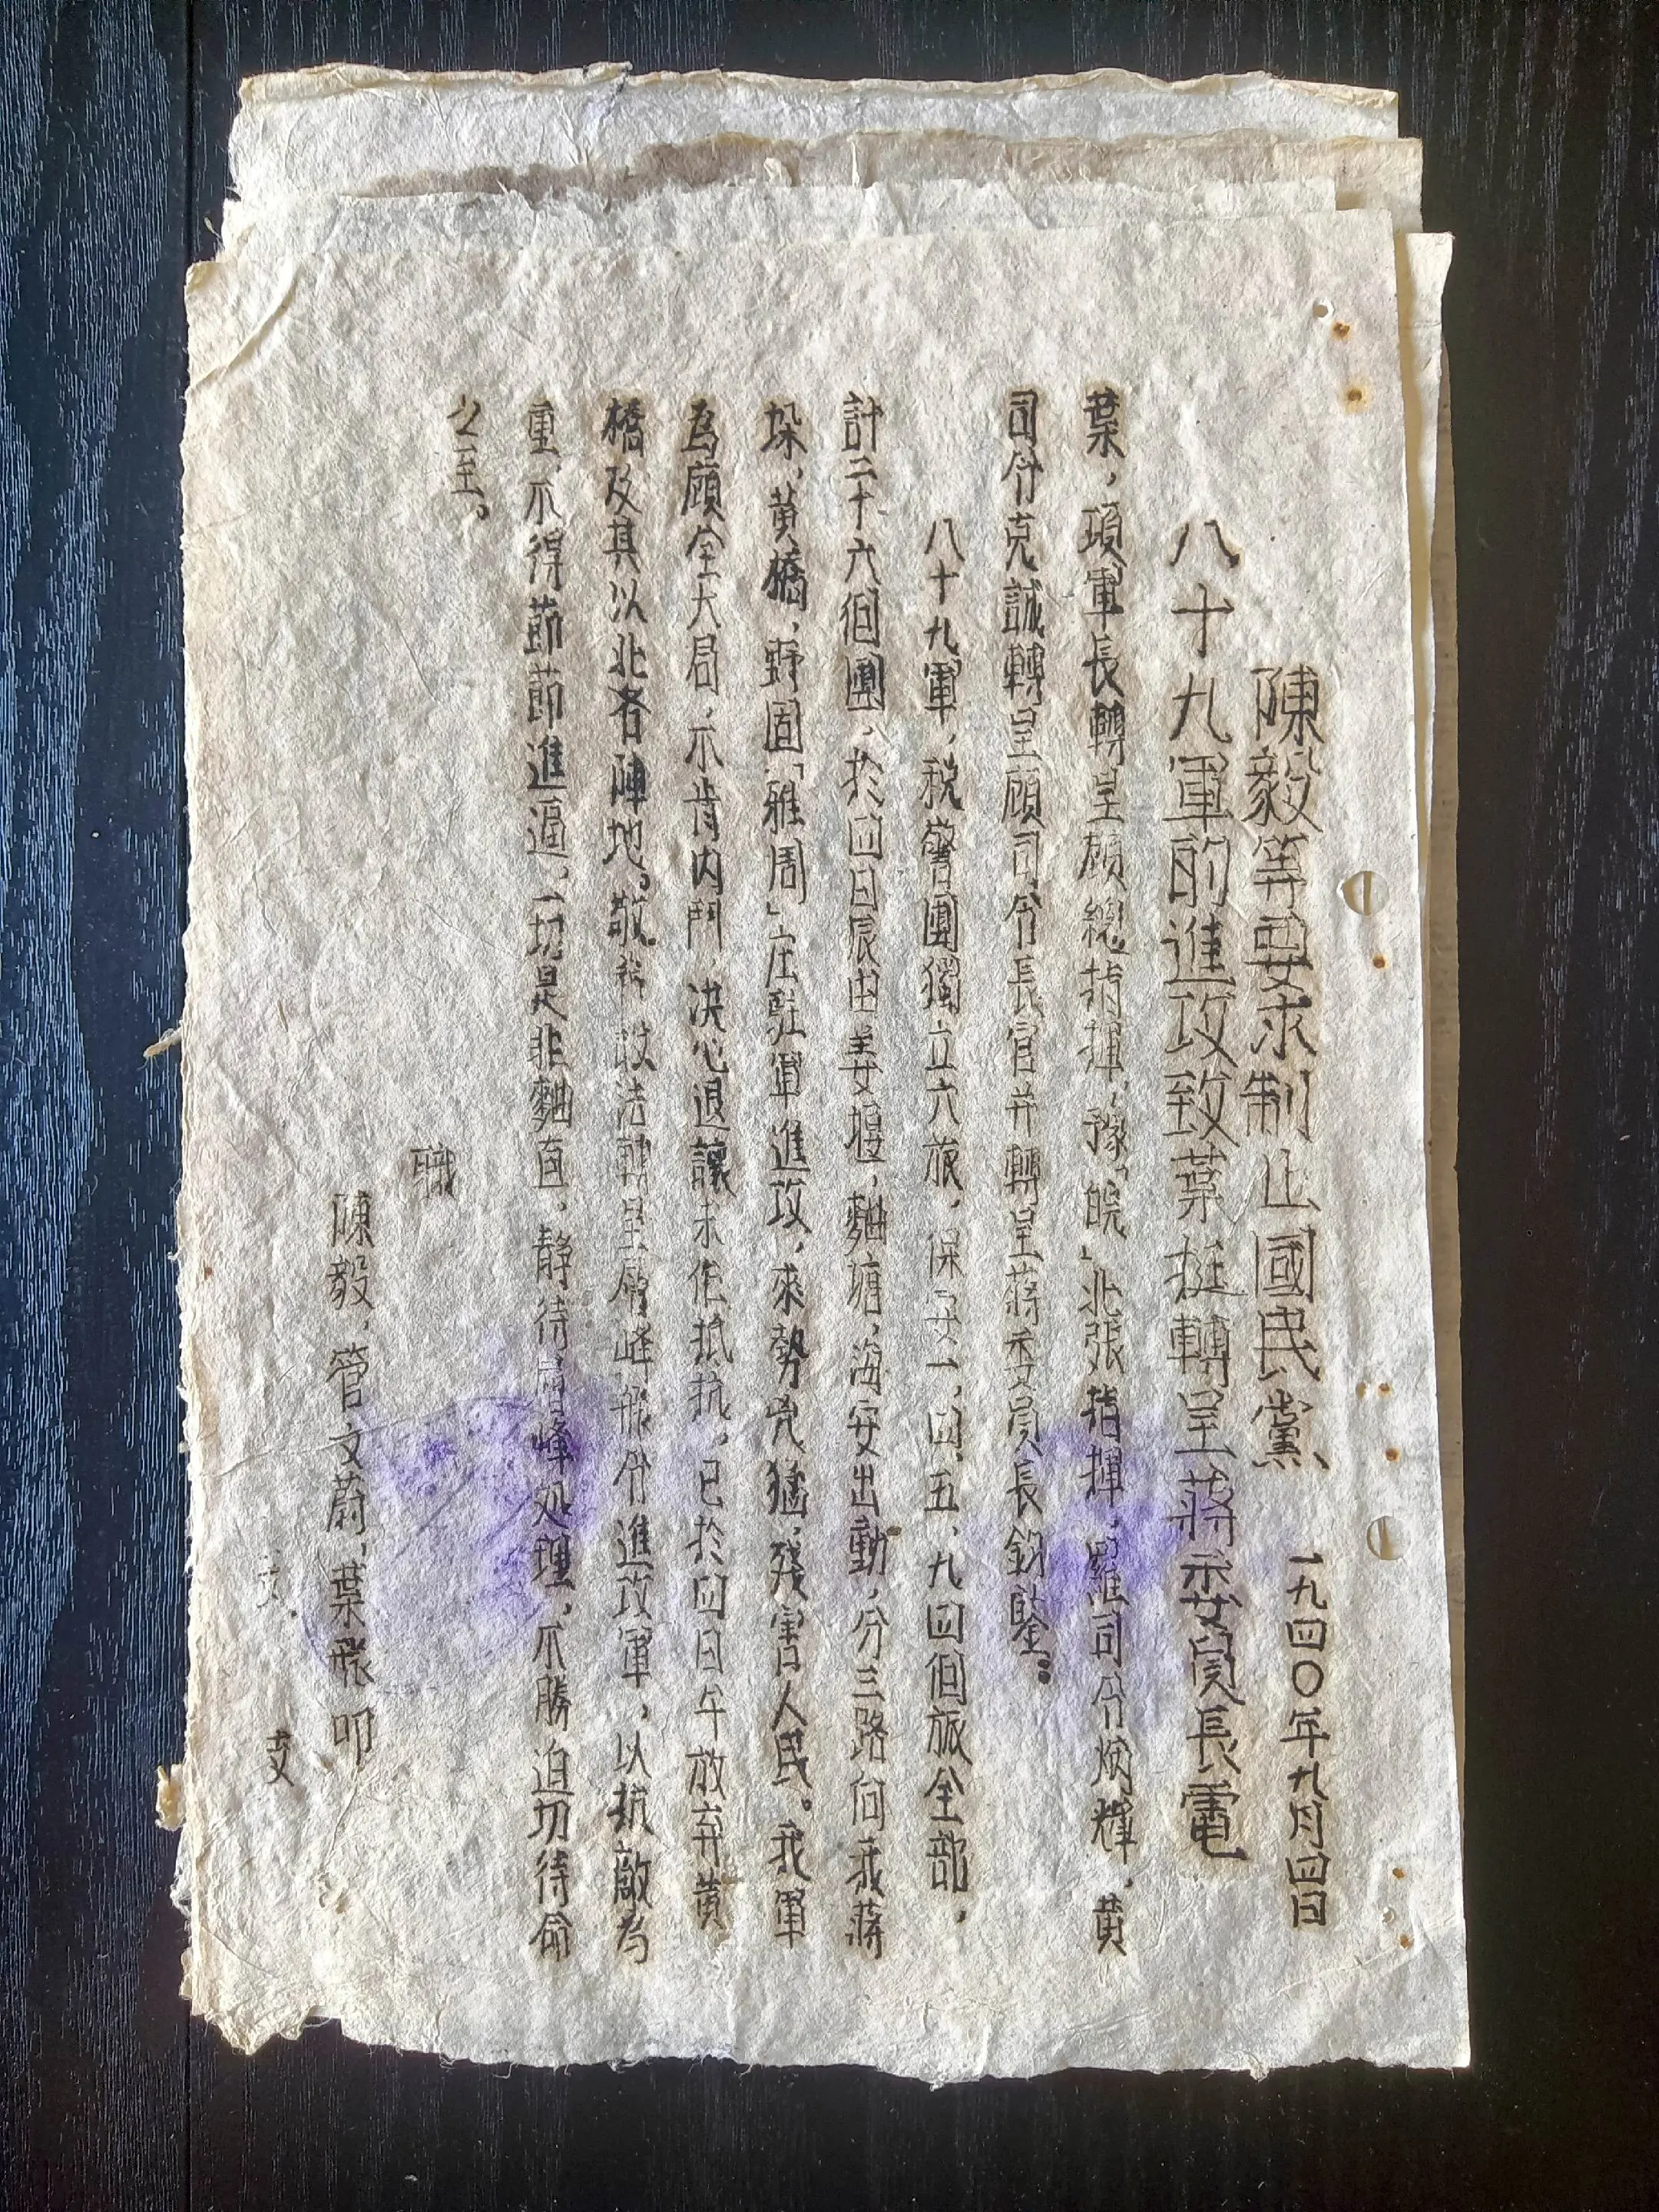 陳毅等要求制止國民黨 一九四〇年九月四日
八十九軍的進攻致葉挺轉呈蔣委員長電
葉，項軍長轉呈顧總指揮，豫「皖」北張指揮，羅司令炳輝，黃
司令克誠轉呈顧司令長官并轉呈蔣委員長鈞鑒：
八十九軍，稅警團獨立六旅，保安一，四，五，九四個旅全部，
計二十六個團，於四日辰由姜堰，麯塘，海安出動，分三路向我蔣
垛，黃橋，野固「雅周」庄駐軍進攻，來勢兇猛，殘害人民。我軍
為顧全大局，不肯內鬥，決心退讓未但抵抗，已於四日午放弃黃
橋及其以北各陣地。敬 設法轉呈層峰飭令進攻軍，以抗敵為
重，不得節節進逼，一切是非麯直，靜待層峰処理，不勝迫切待命
之至。
職
陳毅，管文蔚，葉飛叩
支